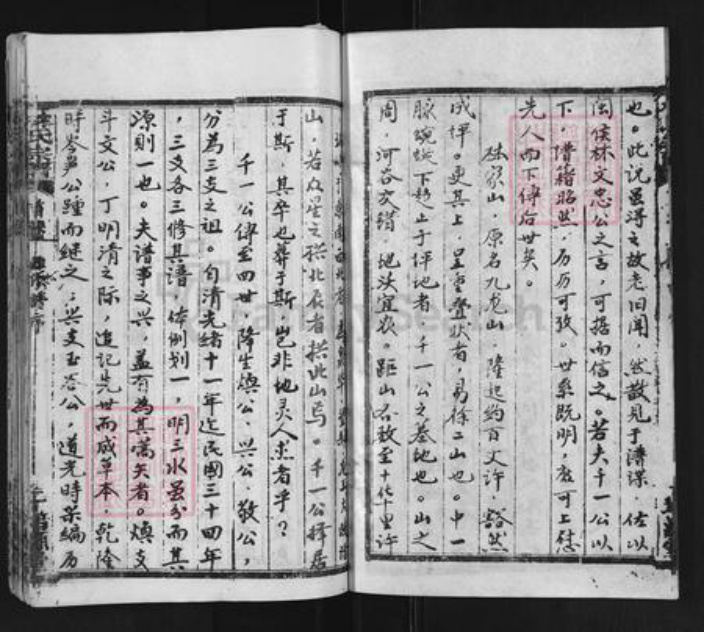 也。此说虽得之故老旧闻，然散见于谱谍，佐以
闽侯林文忠公之言，可据而信之。若夫千一公以
下，谱籍昭然，历历可考。世系既明，庶可上慰
先人而下传后世矣。
山，原名九龙山，隆起约百丈许，豁然
成坪。更其上，呈重叠状者，易徐二山也。中一
脉蜿蜒下趋止于坪地者，千一公之墓地也。山之
周，河谷交错，地沃宜农。距山
山，若众星之拱北辰者拱此山焉。千一公择居
于斯，其卒也葬于斯，岂非地灵人杰者乎？
千一公传至四世，降生焕公、兴公、敬公，
分为三支之祖。自清光绪十一年迄民国三十四年
，三支各三修其谱，体例划一，明三水虽分而其
源则一也。夫谱事之兴，盖有为其嚆矢者。焕支
斗文公，丁明清之际，追记先世而成草本，乾隆
时岑公踵而继之；兴支玉公，道光时采编历